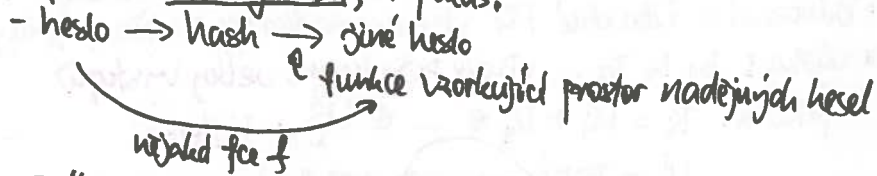 - heslo → hash → jiné heslo
e funkce vzorkující prostor nadějných hesel
nějaká fce f